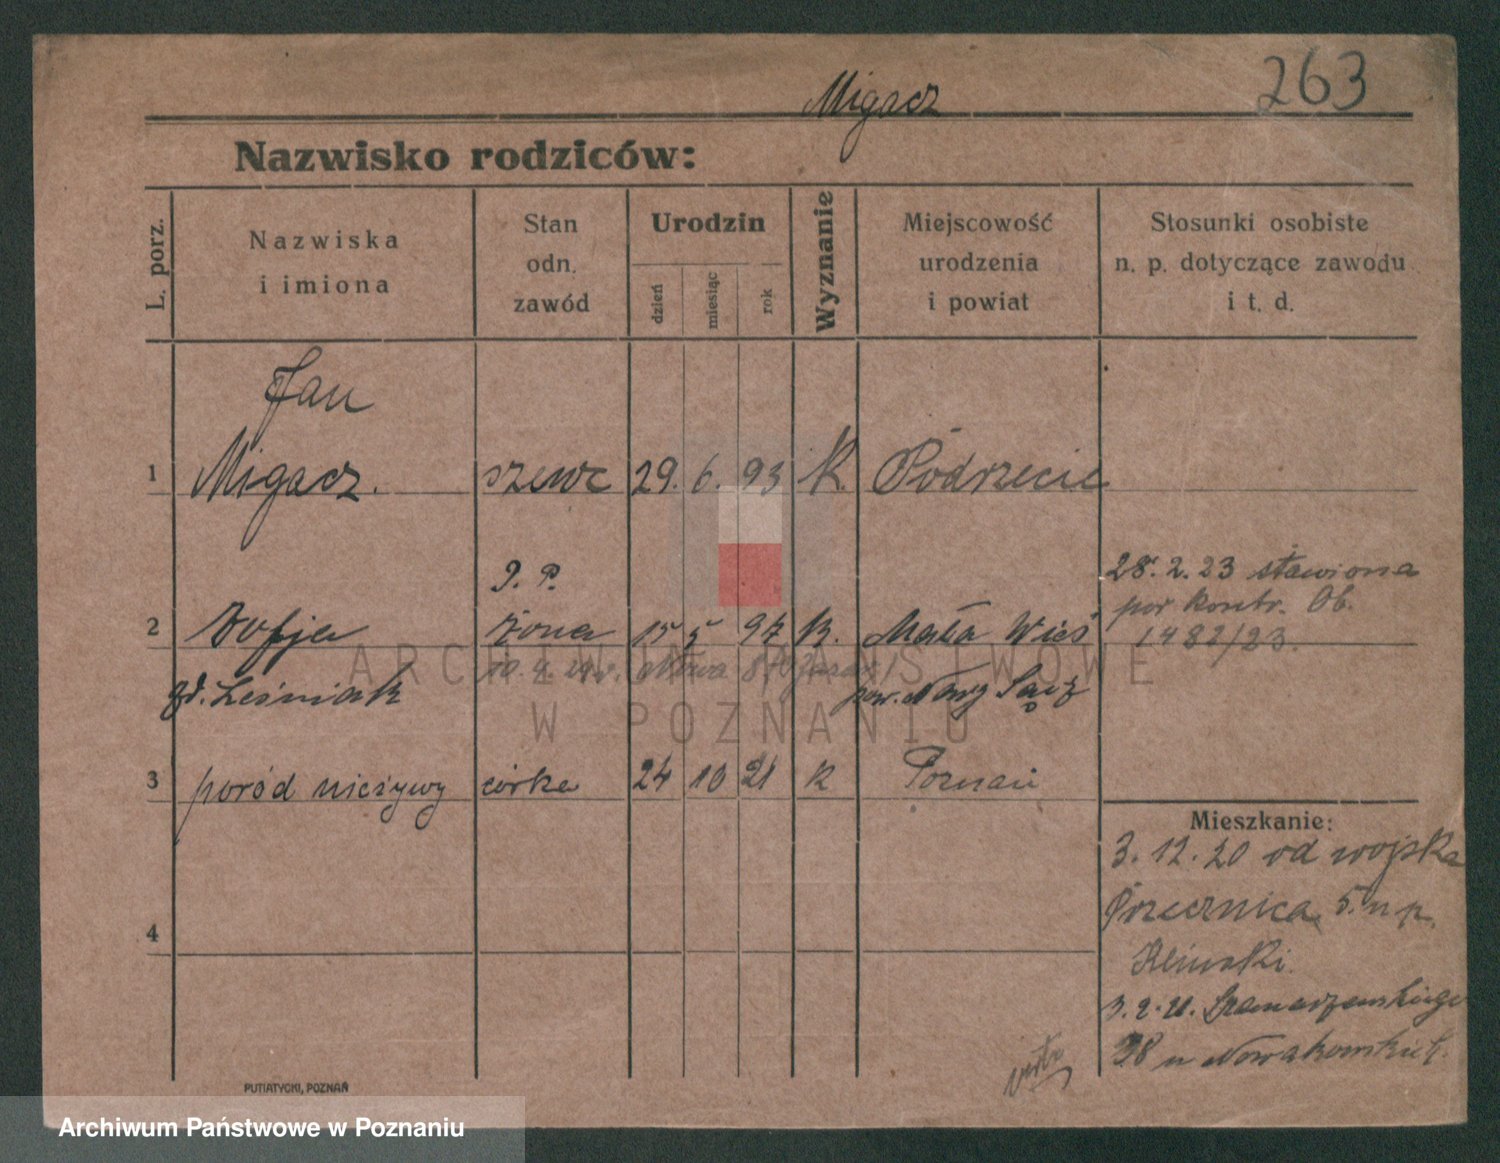 Migacz
263
Nazwisko rodziców:
L. porz.
Nazwiska
i imiona
Stan
odn.
zawód
Urodzin
dzień
miesiąc
rok
Wyznanie
Miejscowość
urodzenia
i powiat
Stosunki osobiste
n. p. dotyczące zawodu
i t. d.
Jan
1 Migacz. szewc 29. 6. 93 K. Podrzecie
28. 2. 23 stawiona
por kontr. Ob.
1482/23.
2 Zofja żona 15 5 97 K. Mała Wieś
gd. Leśniak pow. Nowy Sącz
3 poród nieżywy córka 24 10 21 K Poznań
4
Mieszkanie:
3. 12. 20 od wojska
Przecznica 5. u p.
3. 2. 21.
28 u
verte
PUTIATYCKI, POZNAŃ
ARCHIWUM PAŃSTWOWE
W POZNANIU
Archiwum Państwowe w Poznaniu